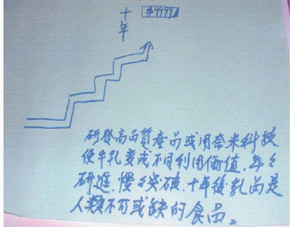 十年
研發高品質產品或用奈米科技
使牛乳變成不同利用價值,年々
研進,慢々突破,十年後乳品是
人類不可或缺的食品。